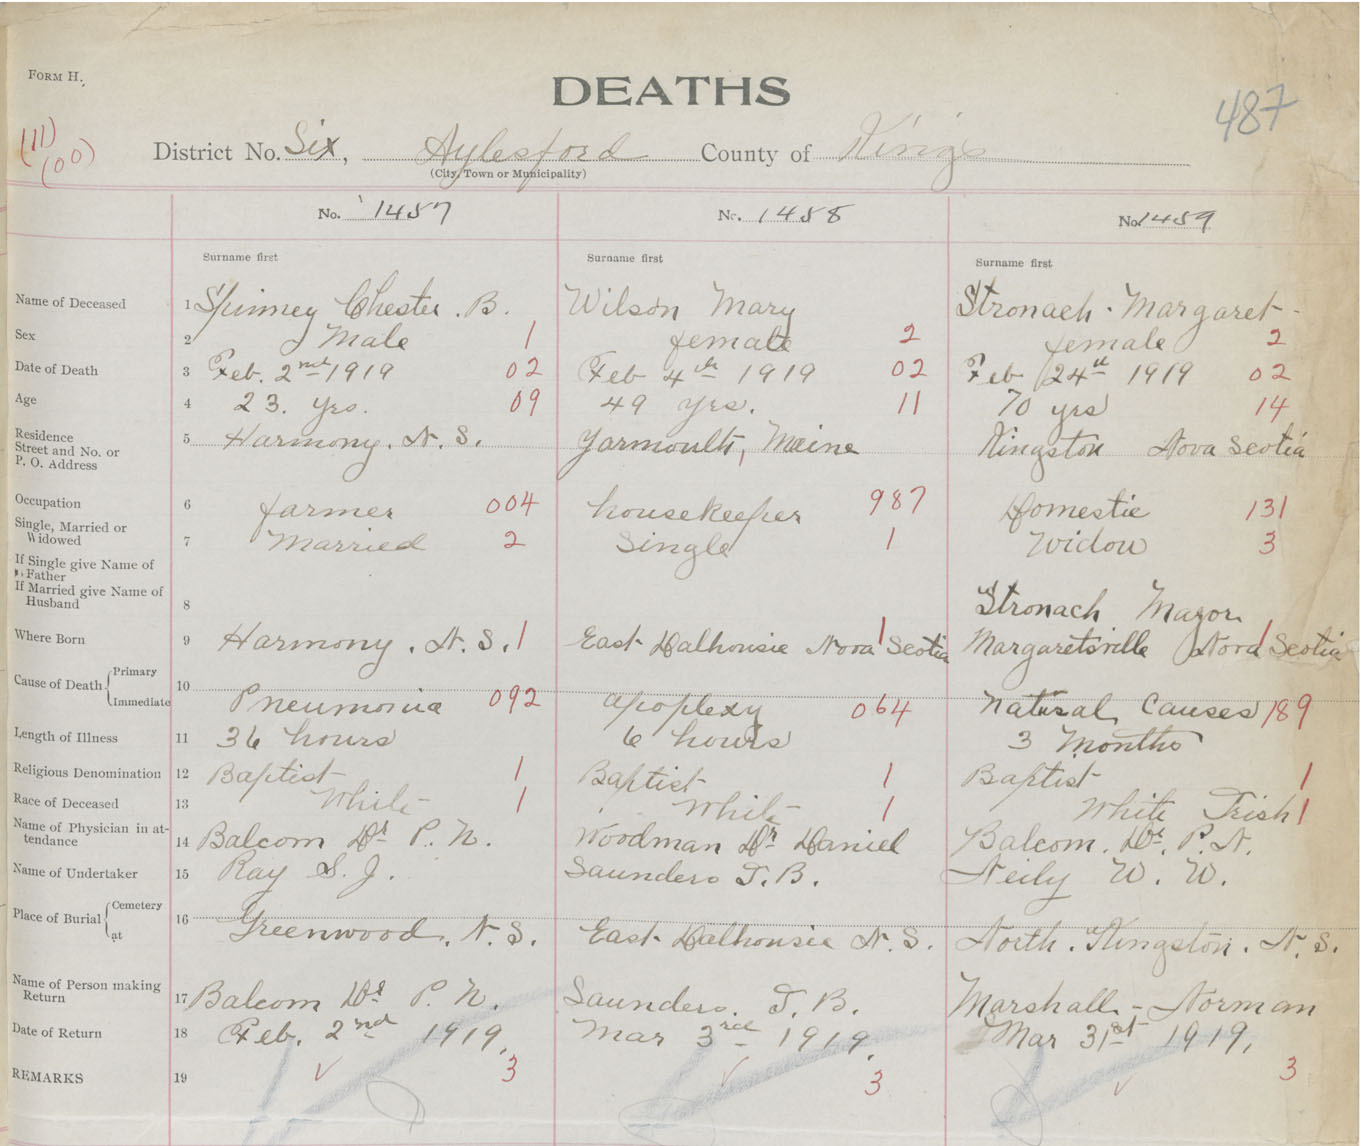 FORM H.
DEATHS
487
(11)
(00)
District No. Six, Aylesford County of Kings
(City, Town or Municipality)
No. 1457 No. 1458 No. 1459
Surname first Surname first Surname first
Name of Deceased 1 Spinney Chester. B. Wilson Mary Stronach. Margaret
Sex 2 Male 1 female 2 female 2
Date of Death 3 Feb. 2nd 1919 02 Feb 4th 1919 02 Feb 24th 1919 02
Age 4 23. yrs. 09 49 yrs. 11 70 yrs 14
Residence
Street and No. or
P. O. Address
5 Harmony. N. S. Yarmouth, Maine Kingston Nova Scotia
Occupation 6 farmer 004 housekeeper 987 Domestic 131
Single, Married or
Widowed
7 Married 2 Single 1 Widow 3
If Single give Name of
Father
If Married give Name of
Husband
8 Stronach Mayor
Where Born 9 Harmony. N. S. 1 East Dalhousie Nova Scotia 1 Margaretsville Nova Scotia 1
Cause of Death Primary
Immediate
10 Pneumonia 092 apoplexy 064 Natural Causes 189
Length of Illness 11 36 hours 6 hours 3 Months
Religious Denomination 12 Baptist 1 Baptist 1 Baptist 1
Race of Deceased 13 White 1 White 1 White Irish 1
Name of Physician in at-
tendance
14 Balcom Dr P. N. Woodman Dr Daniel Balcom. Dr. P. N.
Name of Undertaker 15 Ray S. J. Saunders T. B. Neily W. W.
Place of Burial Cemetery
at
16 Greenwood. N. S. East Dalhousie N. S. North. Kingston. N. S.
Name of Person making
Return
17 Balcom Dr P. N. Saunders. T. B. Marshall - Norman
Date of Return 18 Feb. 2nd 1919. Mar 3rd 1919. Mar 31st 1919.
REMARKS 19 3 3 3